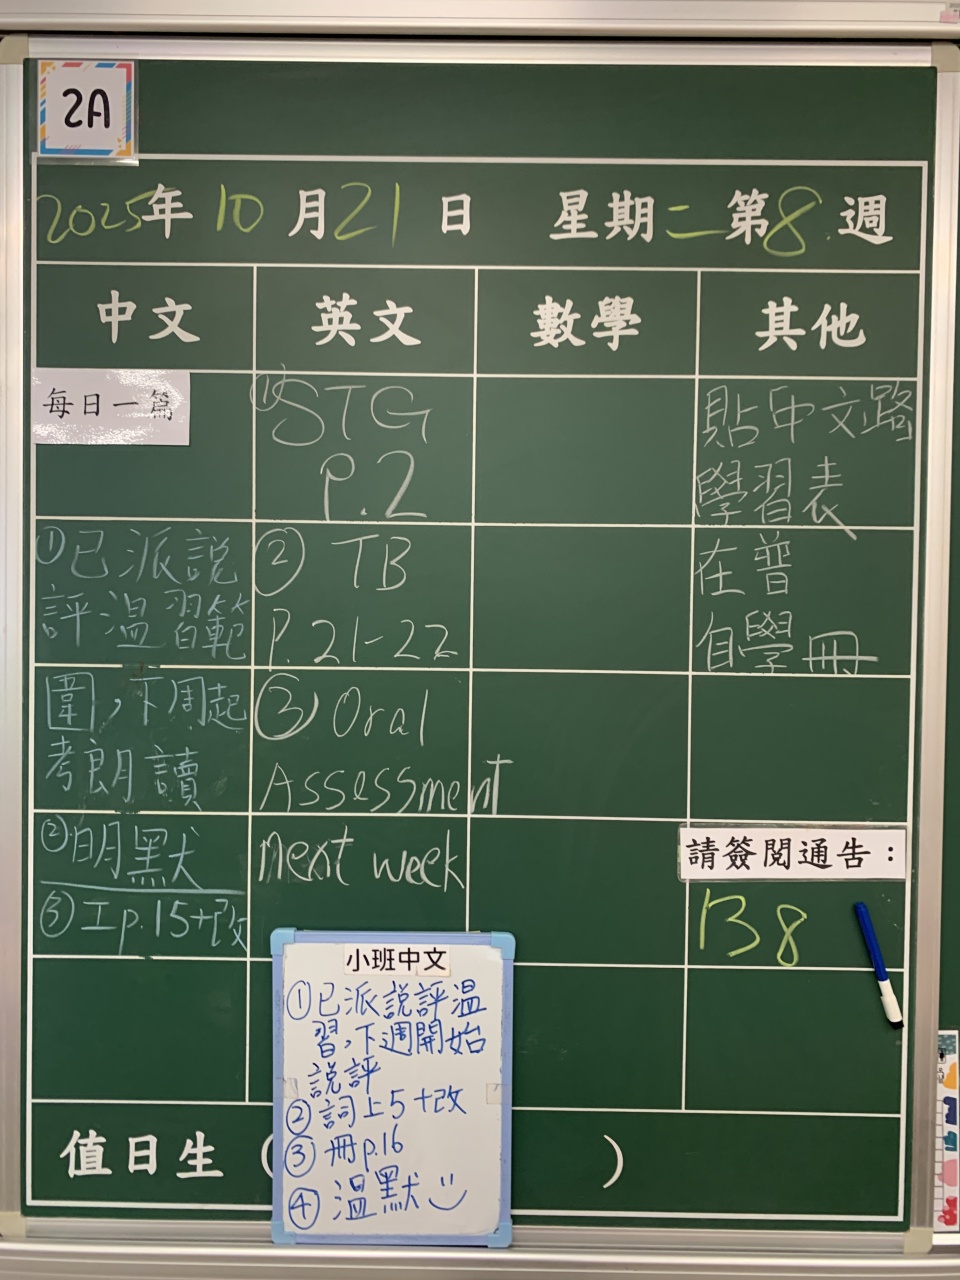 2A
2025年10月21日 星期二第8週
中文 英文 數學 其他
每日一篇
①已派說
評溫習範
圍，下周起
考朗讀
②明默
③工p.15+改
①STG
P.2
② TB
P.21-22
③ Oral
Assessment
next week
貼中文路
學習表
在普
自學冊
請簽閱通告：
B8
小班中文
①已派說評溫
習，下週開始
說評
②詞上5+改
③冊p.16
④溫默
值日生（ ）